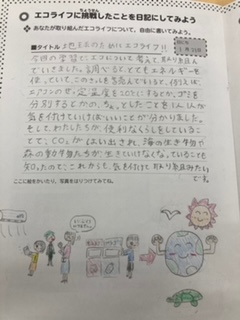 エコライフに挑戦したことを日記にしてみよう
ちょうせん
◆あなたが取り組んだエコライフについて、自由に書いてみましょう。
■タイトル 地球のためにエコライフ!!
今回の学習でエコについて考えて取り組ん
でいきました。調べるととてもエネルギーを
使っていてこのままでは
エアコンのせっ定温度を にするとか、ゴミを
分別するとかの、ちょっとしたことを1人1人が
気を付けていけばいいことが分かりました。
そして、わたしたちが、便利なくらしをしていること
で、CO₂がはい出され、海の生き物や
森の動物たちが生きていけなくなっていることも
知ったので、これからも、気を付けて取り組みたい
です。
ここに絵をかいたり、写真をはりつけてみてね。